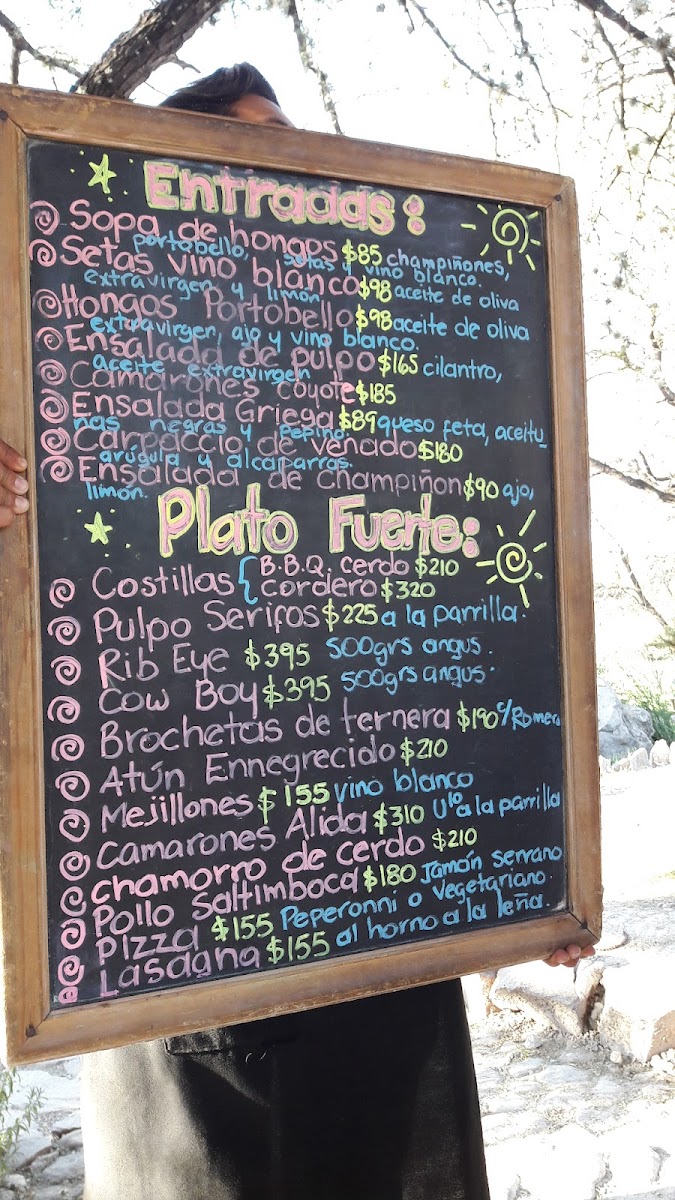 Entradas:
Sopa de hongos $85 champiñones,
portobello, setas y vino blanco.
Setas vino blanco $98 aceite de oliva
extravirgen y limón
Hongos Portobello $98 aceite de oliva
extravirgen, ajo y vino blanco.
Ensalada de pulpo $165 cilantro,
aceite extravirgen
Camarones coyote $185
Ensalada Griega $89 queso feta, aceitu_
nas negras y Pepino.
Carpaccio de venado $180
arúgula y alcaparras.
Ensalada de champiñon $90 ajo,
limón.
Plato Fuerte:
Costillas { B.B.Q. cerdo $210
cordero $320
Pulpo Serifos $225 a la parrilla.
Rib Eye $395 500grs angus.
Cow Boy $395 500grs angus.
Brochetas de ternera $190 c/Romero
Atún Ennegrecido $210
Mejillones $155 vino blanco
Camarones Alida $310 U10 a la parrilla
chamorro de cerdo $210
Pollo Saltimboca $180 Jamón serrano
Pizza $155 Peperonni o vegetariano.
Lasagna $155 al horno a la leña.